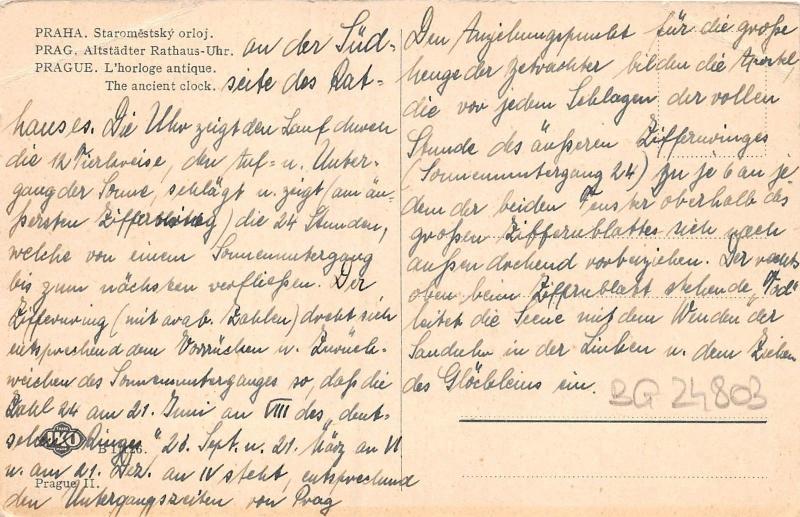 PRAHA. Staroměstský orloj.
PRAG. Altstädter Rathaus-Uhr.
PRAGUE. L'horloge antique.
The ancient clock.
an der Süd-
seite des Rat-
hauses. Die Uhr zeigt den Lauf durch
die 12 Tierkreise, den Auf- u. Unter-
gang der Sonne, schlägt u. zeigt (am äu-
ßersten Zifferring) die 24 Stunden,
welche von einem Sonnenuntergang
bis zum nächsten verfließen. Der
Zifferring (mit arab. Zahlen) dreht sich
entsprechend dem Vorrücken u. Zurück-
weichen des Sonnenunterganges so, daß die
Zahl 24 am 21. Juni an VIII des „deut-
schen Ringes" 20. Sept. u. 21. März an VI
u. am 21. Dez. an IV steht, entsprechend
den Untergangszeiten von Prag
B
Prague II.
Den Anziehungspunkt für die große
Menge der bilden die Apostel,
die vor jedem Schlagen der vollen
Stunde des äußeren Zifferringes
(Sonnenuntergang 24) zu je 6 an je
dem der beiden Fenster oberhalb des
großen Ziffernblattes sich nach
außen drehend vorbeiziehen. Der rechts
oben beim Ziffernblatt stehende „Tod"
leitet die Scene mit dem Wenden der
Sanduhr in der Linken u. dem Ziehen
des Glöckleins ein.
BG 24803